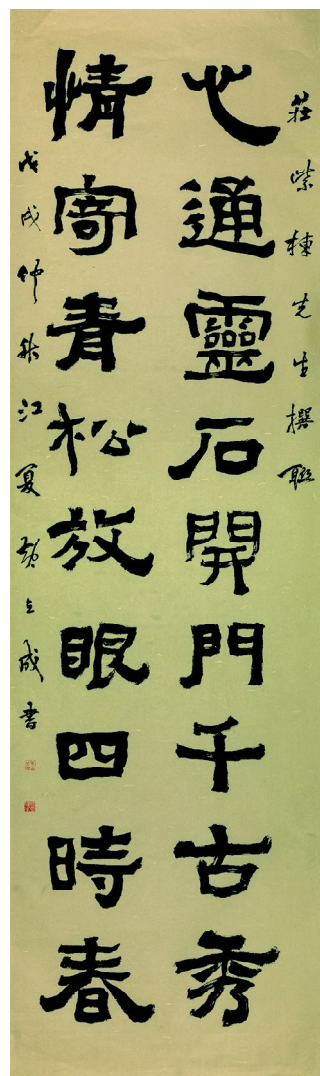 莊紫棟先生撰聯
心通靈石開門千古秀
情寄青松放眼四時春
戊戌仲秋江夏黃立成書